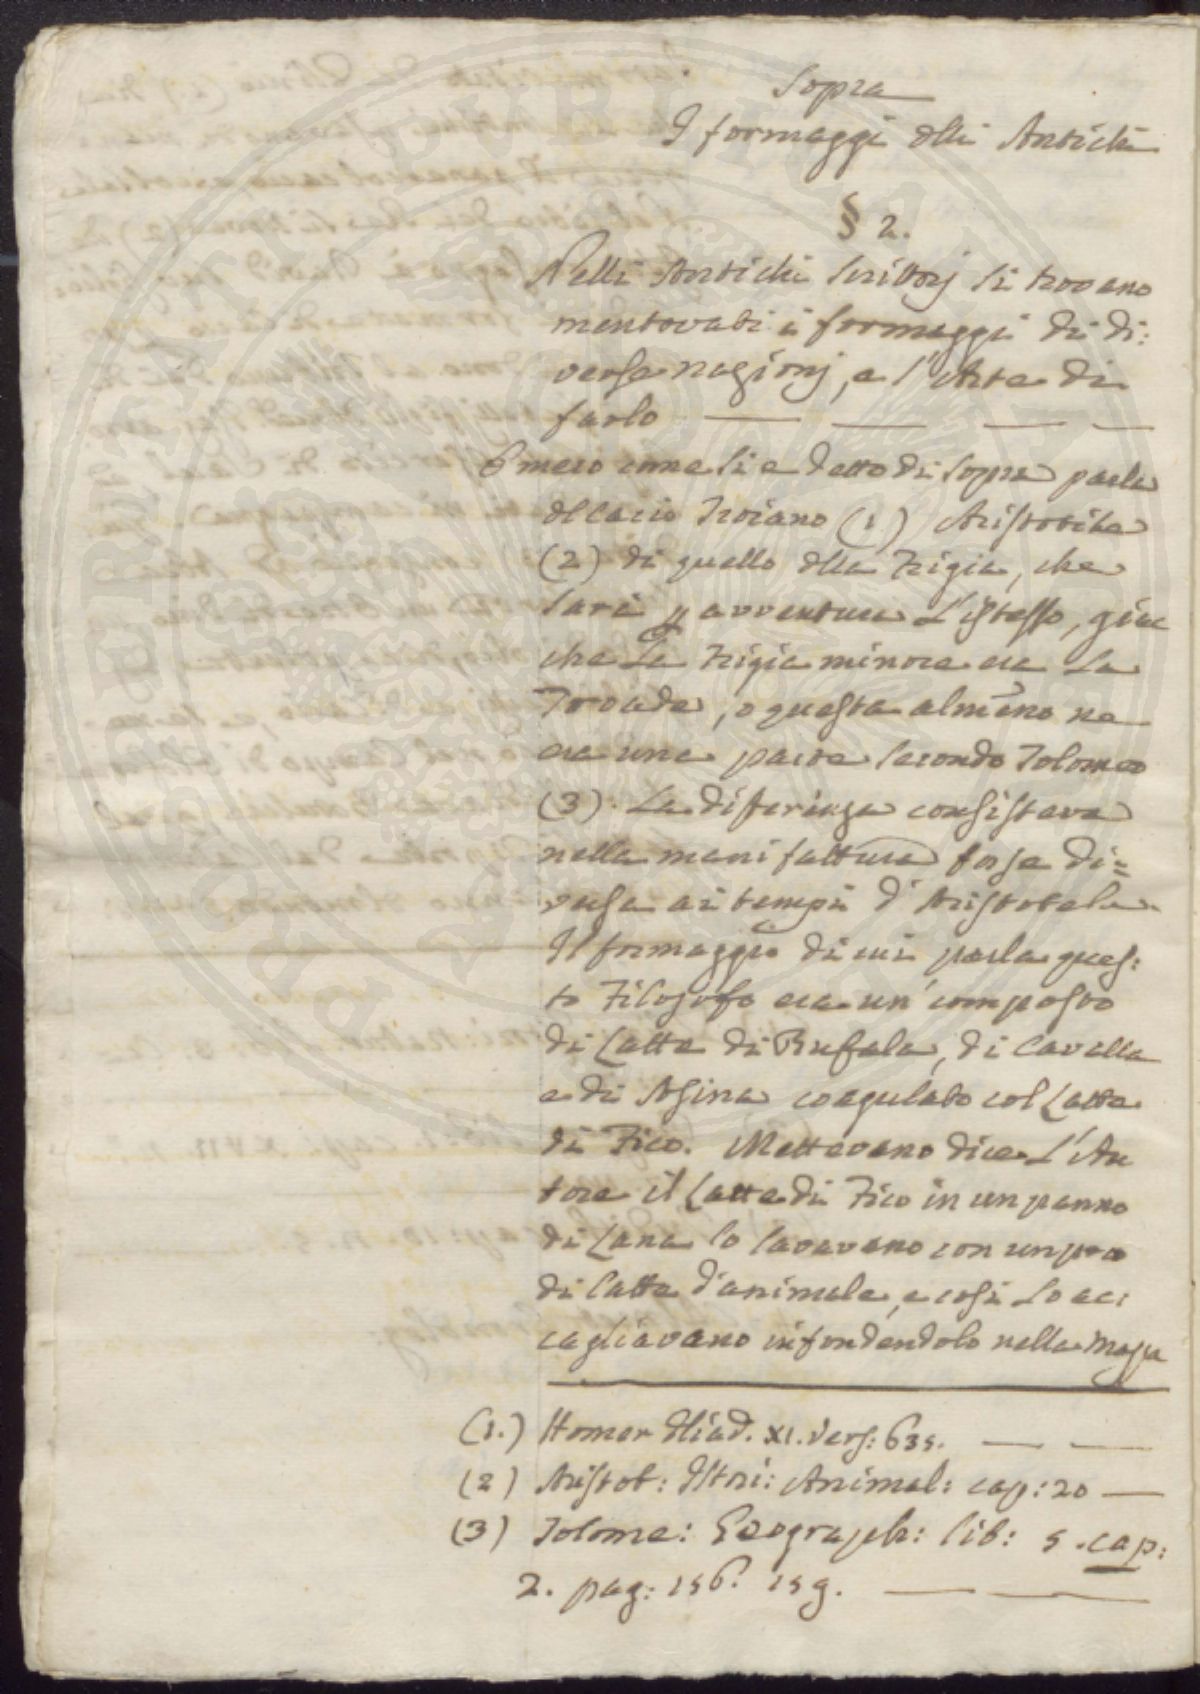 Sopra
I formaggi dlli Antichi
§ 2.
Nelli Antichi Scrittorj si trovano
mentovati i formaggi di di:
verse nazionj, e l'Arte di
farlo
Omero come si e detto di sopra parla
del cacio Troiano (1) Aristotile
(2) di quello dlla Frigia, che
sarà p avventura l'istesso, giac
che la Frigia minore era la
Troade, o questa almeno ne
era una parte secondo Tolomeo
(3) La diferinza consisteva
nella manifattura forse di=
versa ai tempi d'Aristotele.
Il formaggio di cui parla ques:
to Filosofo era un' composto
di Latte di Bufala, di Cavalla
e di Asina coagulato col Latte
di Fico. Mettevano dice l'Au
tore il Latte di Fico in un panno
di Lana lo lavavano con un poco
di latte d'animale, e così lo ac:
cagliavano infondendolo nella
(1.) Homer Iliad. XI. vers: 635.
(2) Aristot: Istori: Animal: cap: 20
(3) Tolome: Geograph: lib: 5. cap:
2. pag: 156. 159.
PUBLICA